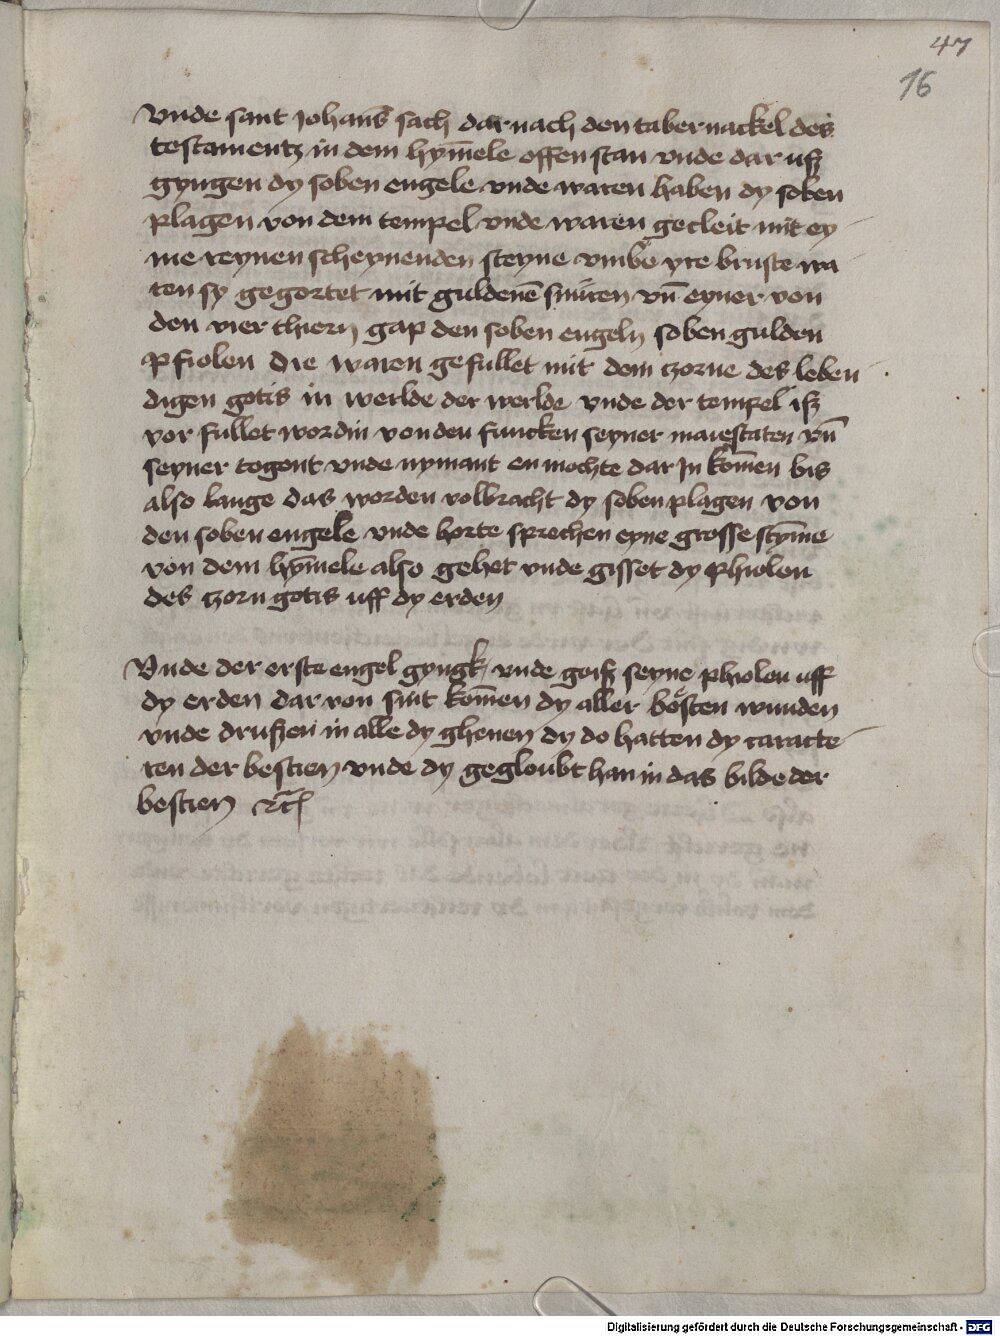 47
16
Vnde sant Johans̄ sach dar nach den tabernackel des
testamentz in dem hym̄ele offen stan vnde dar uſz
gyngen dy soben engele vnde waren haben dy soben
plagen von dem tempel vnde waren gecleit mit ey
me reynen scheynenden steyne vmbe yre bruste wa
ren sy gegortet mit guldenē snůren vn̄ eyner von
den vier thiern gap den soben engeln soben gulden
pfiolen Die waren gefullet mit dem zorne des leben
digen gotis in werlde der werlde vnde der tempel iſz
vor fullet wordin von den funcken seyner maiestaten vn̄
seyner togent vnde nymant en mochte dar Jn kom̄en bis
also lange das worden volbracht dy soben plagen von
den soben engele vnde horte sprechen eyne grosse stym̄e
von dem hym̄ele also gehet vnde gisset dy phiolen
des zorn gotis uff dy erden
Vnde der erste engel gyngk vnde goiſz seyne phiolen uff
dy erden dar von sint kom̄en dy aller bősten wunden
vnde druſzen in alle dy ghenen dy do hatten dy caracte
ren der bestien vnde dy gegloubt han in das bilde der
bestien ꝛc̄
Digitalisierung gefördert durch die Deutsche Forschungsgemeinschaft - DFG